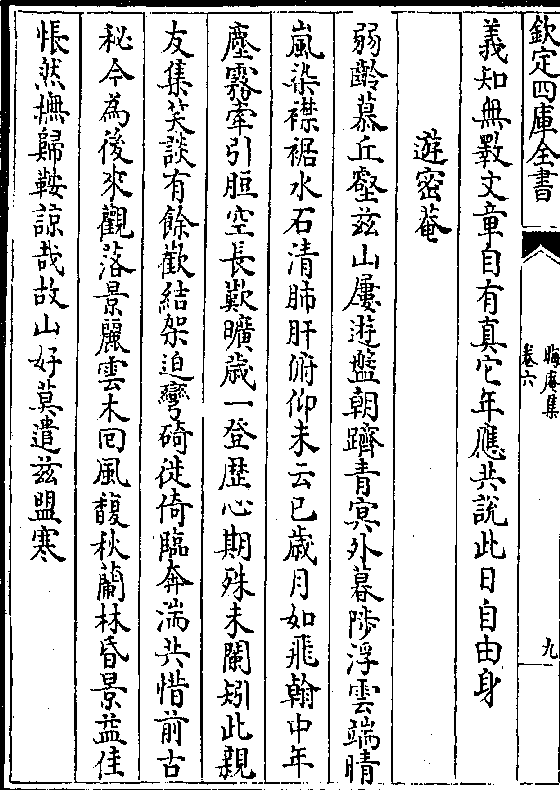 欽定四庫全書
晦庵集
卷六
九
義知無斁文章自有真它年應共說此日自由身
遊密菴
弱齡慕丘壑兹山屢遊盤朝躋青冥外暮陟浮雲端晴
嵐染襟裾水石清肺肝俯仰未云已歲月如飛翰中年
塵霧牽引脰空長歎曠歲一登歴心期殊未闌矧此親
友集笑談有餘歡結架迫彎碕徙倚臨奔湍共惜前古
秘今為後來觀落景麗雲木回風馥秋蘭林昏景益佳
悵然撫歸鞍諒哉故山好莫遣兹盟寒